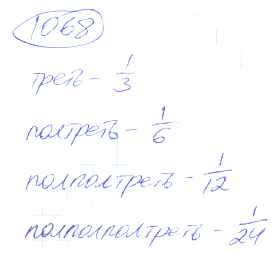 1068
треть - 1/3
полтреть - 1/6
полполтреть - 1/12
полполполтреть - 1/24